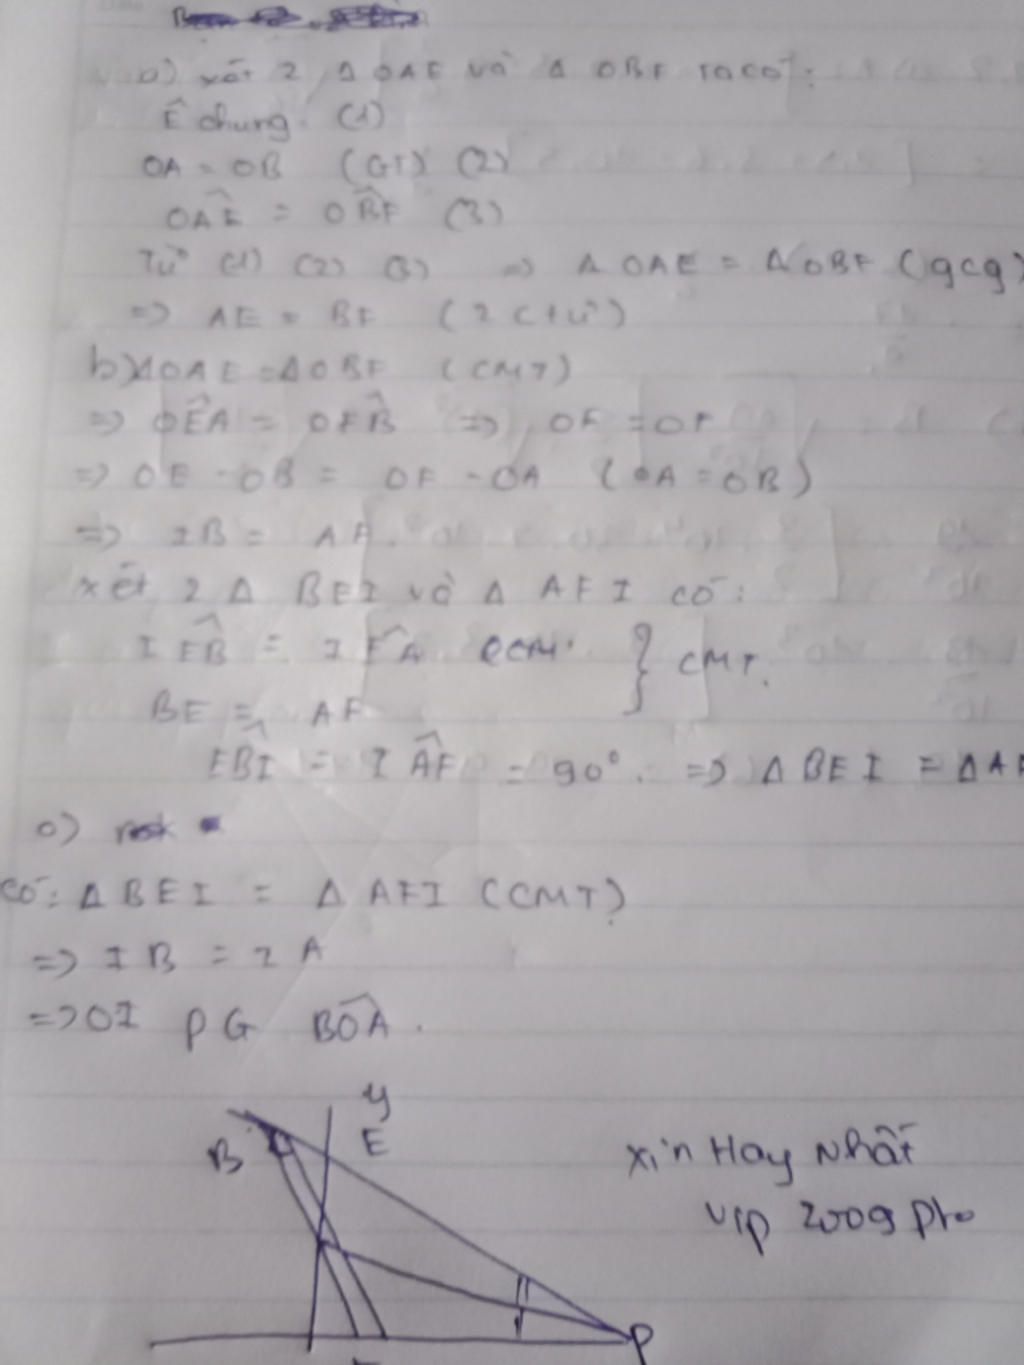 a) xét 2 Δ OAE và Δ OBF ta có:
Ê chung (1)
OA = OB (GT) (2)
OÂE = OB̂F (3)
Từ (1) (2) (3) => Δ OAE = Δ OBF (gcg)
=> AE = BF (2 c t ư)
b) ΔOAE = ΔOBF (CMT)
=> OÊA = OF̂B => OE = OF
=> OE - OB = OF - OA (OA = OB)
=> EB = AF.
xét 2 Δ BEI và Δ AFI có:
IÊB = IF̂A } CMT.
BE = AF
EB̂I = IÂF = 90°. => Δ BEI = Δ AF
c)
có: Δ BEI = Δ AFI (CMT)
=> IB = IA
=> OI PG BÔA.
y
B E
xin Hay Nhất
vip 2009 pro
P